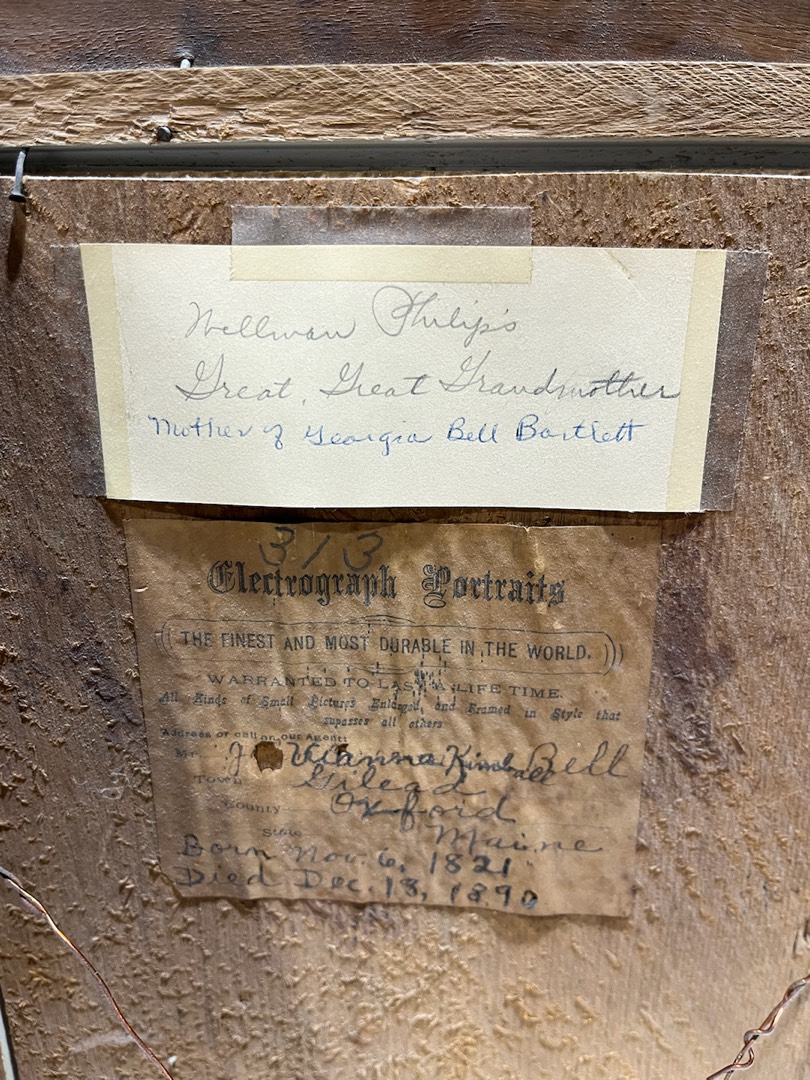 Wellman Philip's
Great, Great Grandmother
Mother of Georgia Bell Bartlett
313
Electrograph Portraits
THE FINEST AND MOST DURABLE IN THE WORLD.
WARRANTED TO LAST A LIFE TIME.
All Kinds of Small Pictures Enlarged, and Framed in Style that
supasses all others
Address or call on our Agent:
Mr. Anna Kimball Bell
Town Gilead
County Oxford
State Maine
Born Nov. 6, 1821
Died Dec. 18, 1890